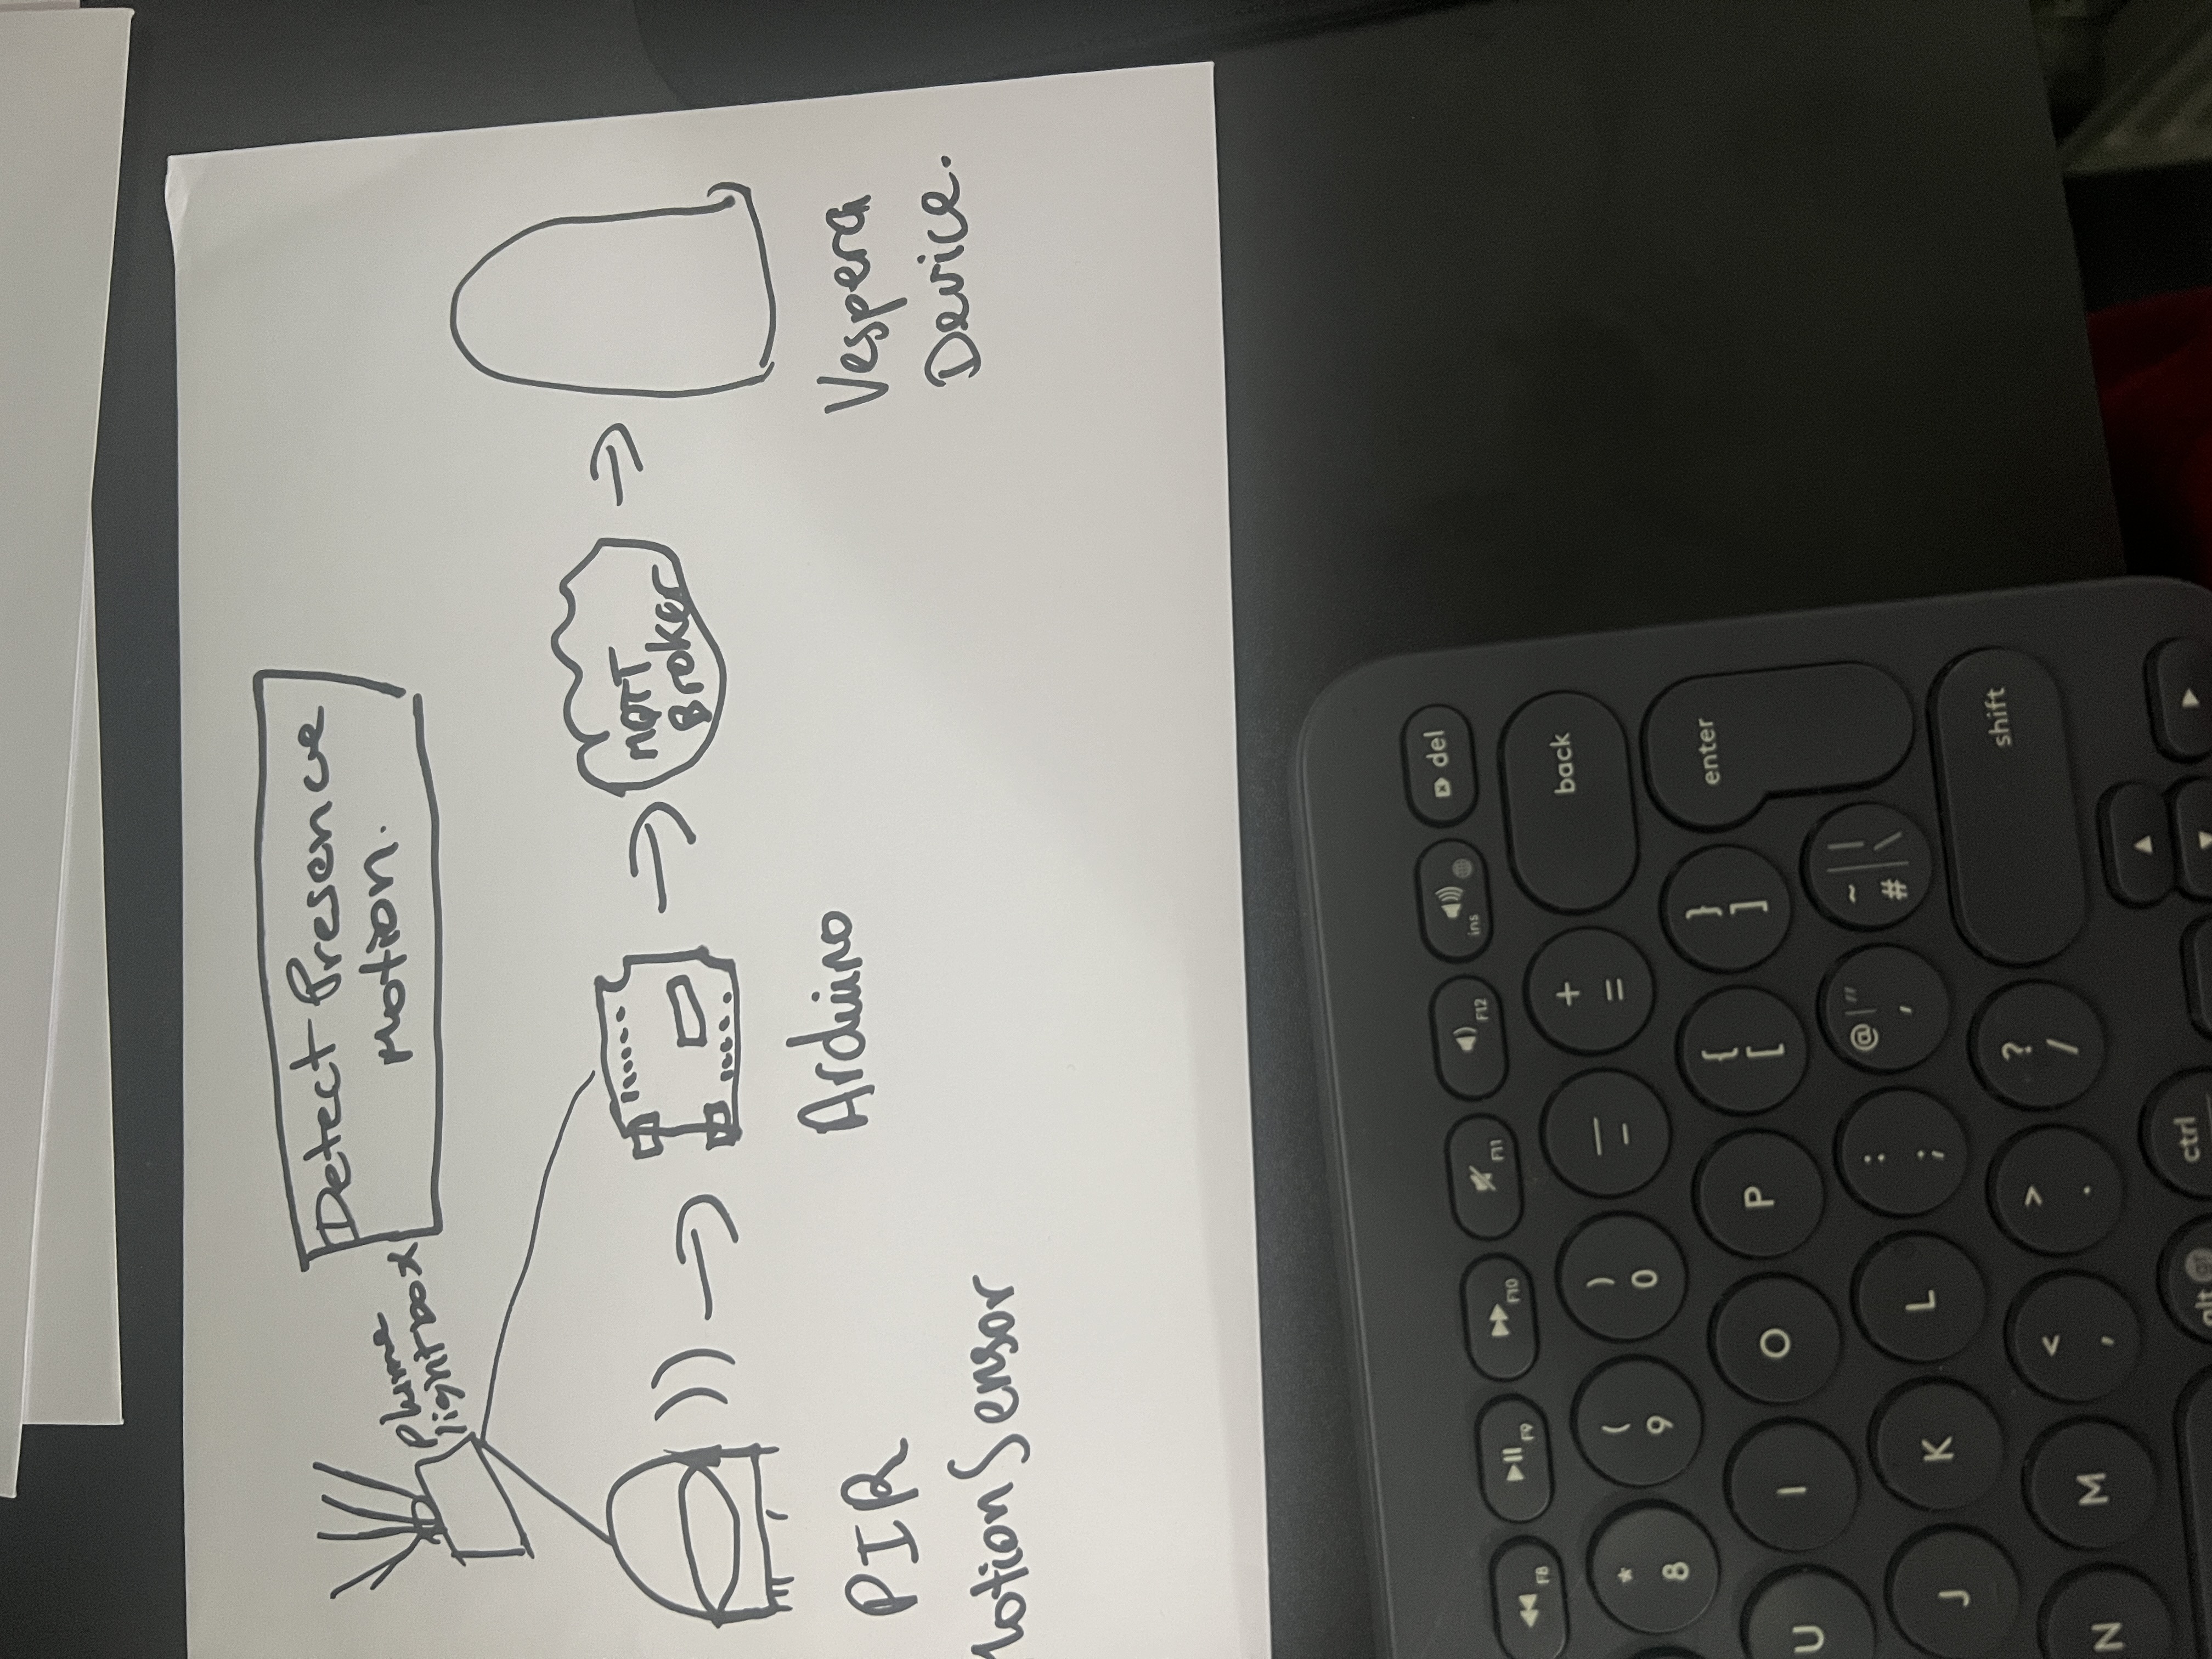 Detect Presence
Motion.
plume
lightbox
MQTT
Broker
PIR
Motion Sensor
Arduino
Vespera
Device.
F8
F9
F10
F11
F12
ins
del
* 8
( 9
) 0
— –
+ =
back
U
I
O
P
{ [
} ]
enter
J
K
L
: ;
@ | " '
~ # | | \
shift
N
M
< ,
> .
? /
alt gr
ctrl